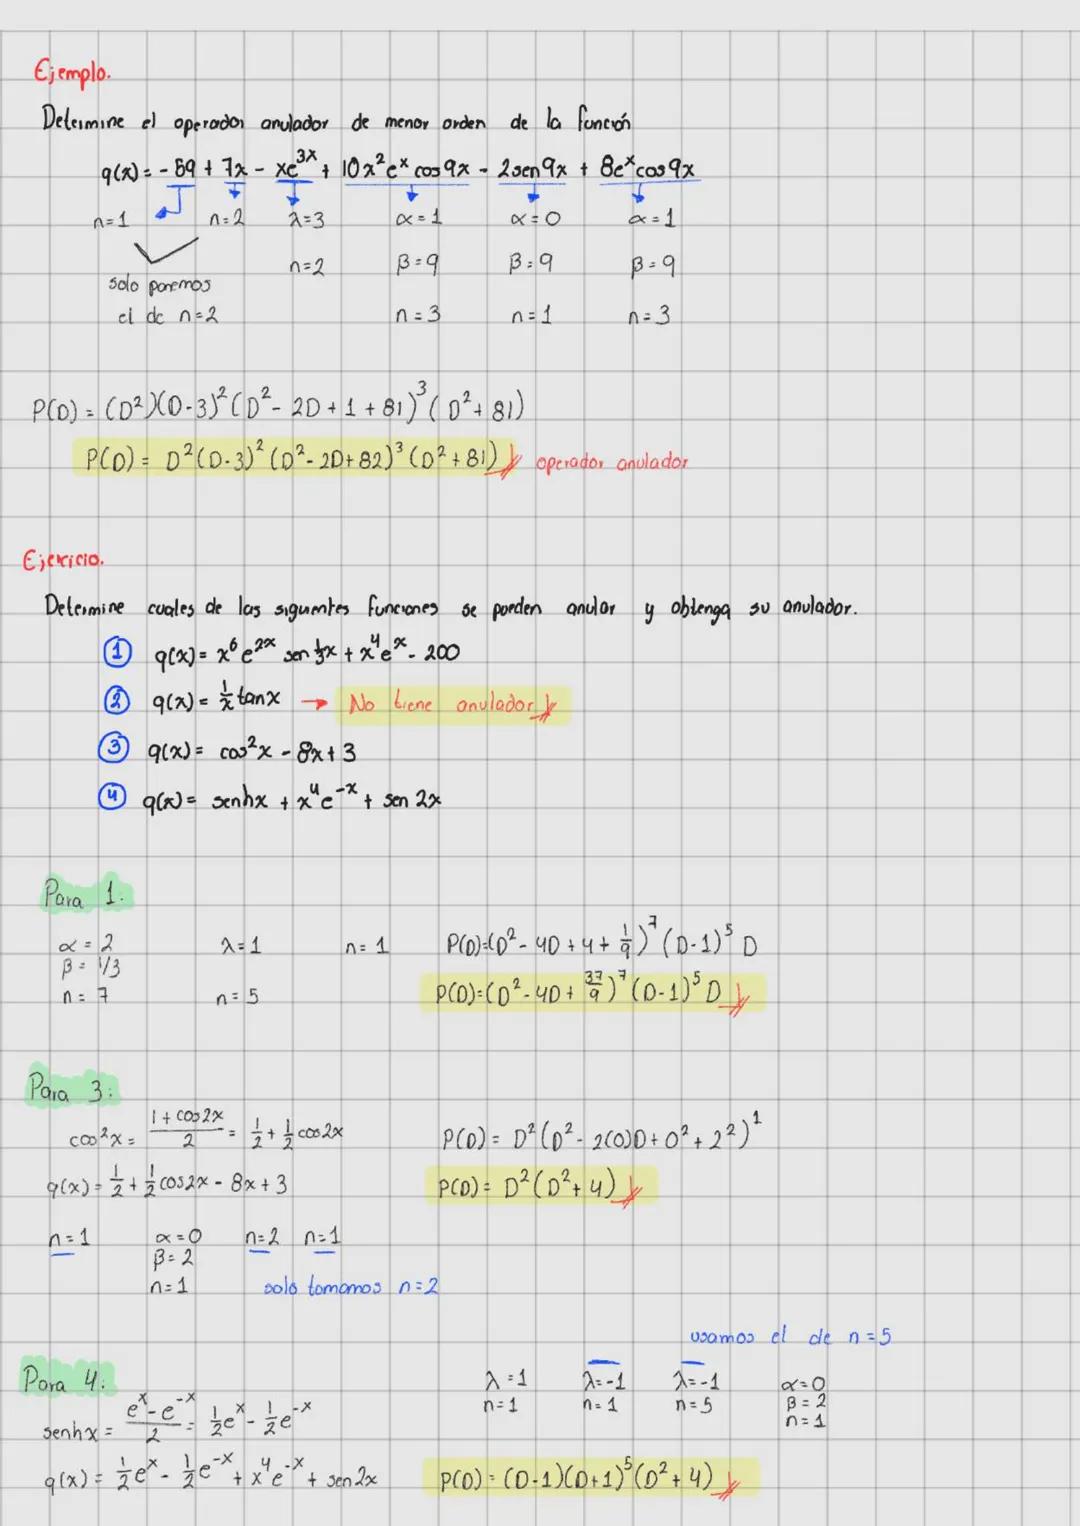 Ejemplo.
Determine el operador anulador de menor orden de la función
q(x) = - 89 + 7x - xe^{3x} + 10x²e^x cos 9x - 2sen 9x + 8e^x cos 9x
n=1 n=2 λ=3 α=1 α=0 α=1
n=2 β=9 β=9 β=9
solo ponemos
el de n=2 n=3 n=1 n=3
P(D) = (D²)(D-3)²(D² - 2D + 1 + 81)³(D² + 81)
P(D) = D²(D-3)²(D² - 2D + 82)³(D² + 81) operador anulador
Ejercicio.
Determine cuales de las siguientes funciones se pueden anular y obtenga su anulador.
① q(x) = x⁶e^{2x} sen ⅓x + x⁴e^x - 200
② q(x) = 1/x tanx → No tiene anulador
③ q(x) = cos²x - 8x + 3
④ q(x) = senhx + x⁴e^{-x} + sen 2x
Para 1:
α = 2 λ=1 n=1 P(D)=(D² - 4D + 4 + 1/9)⁷(D-1)⁵ D
β = 1/3
n = 7 n=5 P(D)=(D² - 4D + 37/9)⁷(D-1)⁵ D
Para 3:
cos²x = (1 + cos2x)/2 = 1/2 + 1/2 cos2x P(D) = D²(D² - 2(0)D + 0² + 2²)¹
q(x) = 1/2 + 1/2 cos2x - 8x + 3 P(D) = D²(D² + 4)
n=1 α=0 n=2 n=1
β=2
n=1 solo tomamos n=2
usamos el de n=5
Para 4: λ=1 λ=-1 λ=-1 α=0
n=1 n=1 n=5 β=2
n=1
senhx = (e^x - e^{-x})/2 = 1/2 e^x - 1/2 e^{-x}
q(x) = 1/2 e^x - 1/2 e^{-x} + x⁴e^{-x} + sen 2x P(D) = (D-1)(D+1)⁵(D² + 4)